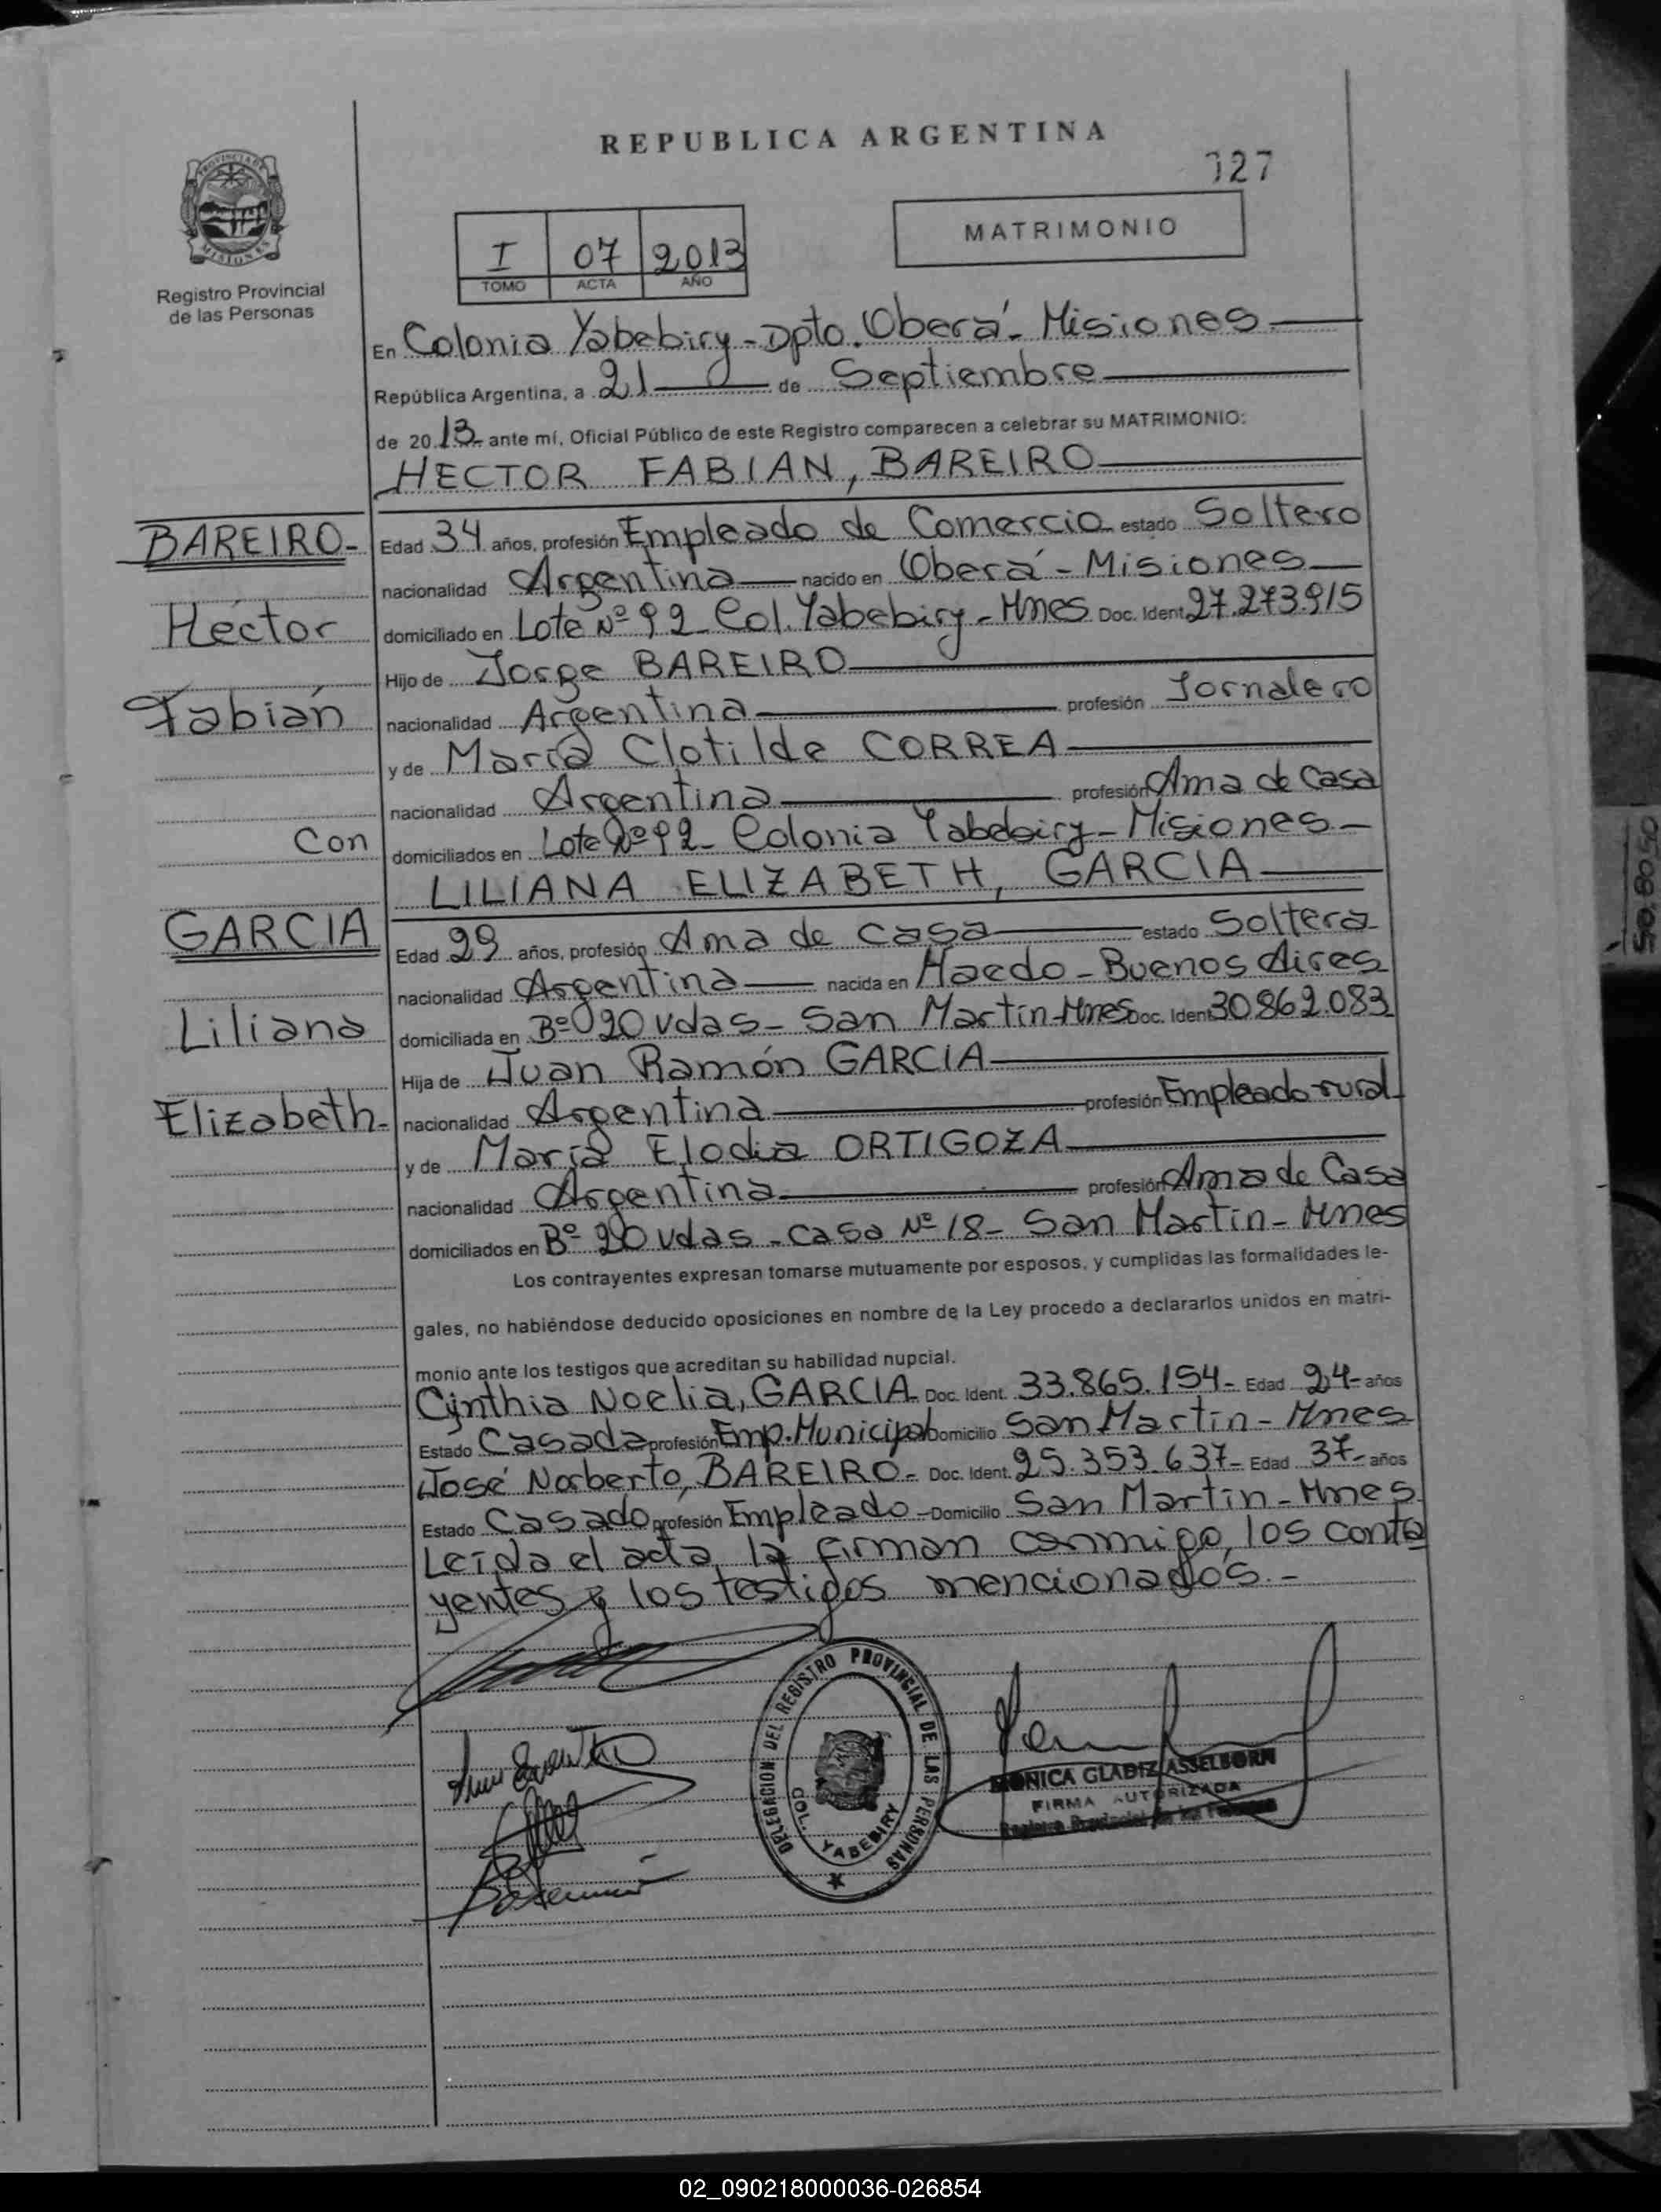 REPUBLICA ARGENTINA
127
PROVINCIA DE MISIONES
Registro Provincial
de las Personas
I 07 2013
TOMO ACTA AÑO
MATRIMONIO
En Colonia Yabebiry - Dpto. Oberá - Misiones
República Argentina, a 21 de Septiembre
de 2013 ante mí, Oficial Público de este Registro comparecen a celebrar su MATRIMONIO:
HECTOR FABIAN, BAREIRO
BAREIRO- Edad 34 años, profesión Empleado de Comercio estado Soltero
nacionalidad Argentina nacido en Oberá - Misiones
Héctor domiciliado en Lote Nº 92 Col. Yabebiry - Mnes Doc. Ident. 27.273.915
Hijo de Jorge BAREIRO
Fabián nacionalidad Argentina profesión Jornalero
y de María Clotilde CORREA
nacionalidad Argentina profesión Ama de Casa
Con domiciliados en Lote Nº 92 - Colonia Yabebiry - Misiones -
LILIANA ELIZABETH, GARCIA
GARCIA Edad 29 años, profesión Ama de casa estado Soltera
nacionalidad Argentina nacida en Haedo - Buenos Aires
Liliana domiciliada en Bº 20 vdas - San Martín - Mnes Doc. Ident. 30.862.083
Hija de Juan Ramón GARCIA
Elizabeth- nacionalidad Argentina profesión Empleado rural
y de María Elodia ORTIGOZA
nacionalidad Argentina profesión Ama de Casa
domiciliados en Bº 20 vdas - casa Nº 18 - San Martín - Mnes
Los contrayentes expresan tomarse mutuamente por esposos, y cumplidas las formalidades le-
gales, no habiéndose deducido oposiciones en nombre de la Ley procedo a declararlos unidos en matri-
monio ante los testigos que acreditan su habilidad nupcial.
Cynthia Noelia, GARCIA Doc. Ident. 33.865.154- Edad 24- años
Estado Casada profesión Emp. Municipal Domicilio San Martín - Mnes
José Norberto, BAREIRO- Doc. Ident. 25.353.637- Edad 37- años
Estado Casado profesión Empleado - Domicilio San Martín - Mnes
Leída el acta, la firman conmigo, los conta
yentes y los testigos mencionados.-
DELEGACION DEL REGISTRO PROVINCIAL DE LAS PERSONAS
COL. YABEBIRY
MONICA GLADIZ ASSELBORN
FIRMA AUTORIZADA
Registro Provincial de las Personas
02_090218000036-026854